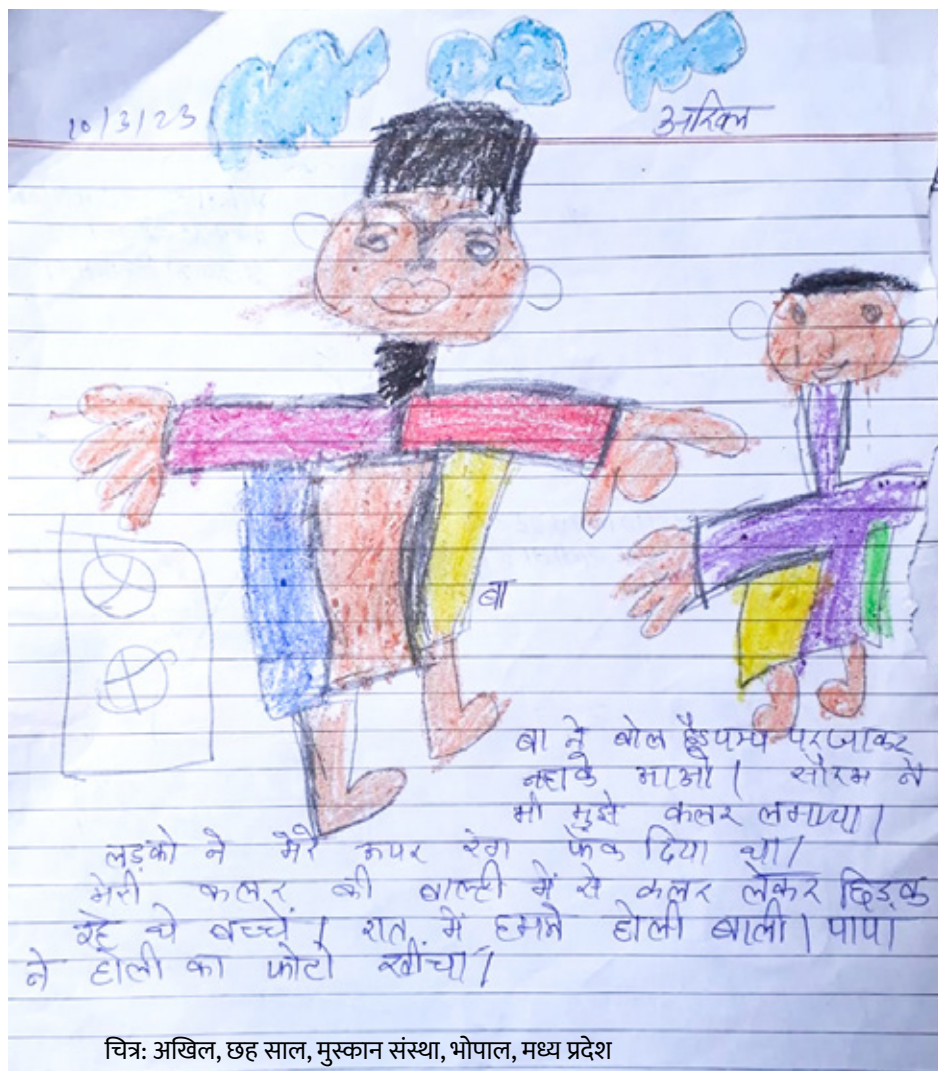 10/3/23
अखिल
बा
बा ने बोल हैडपम्प पर जाकर
नहाके आओ। सौरभ ने
भी मुझे कलर लगाया।
लड़को ने मेरे ऊपर रंग फेक दिया था।
मेरी कलर की बाल्टी में से कलर लेकर छिड़क
रहे थे बच्चें। रात में हमने होली बाली। पापा
ने होली का फोटो खींचा।
चित्र: अखिल, छह साल, मुस्कान संस्था, भोपाल, मध्य प्रदेश